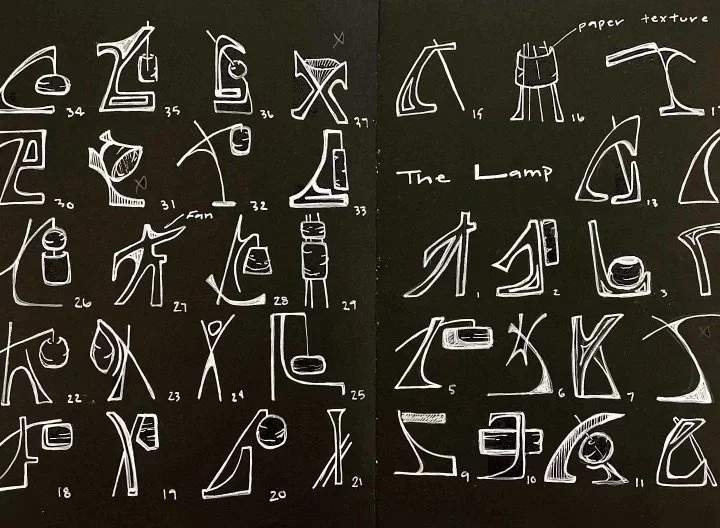 34 35 36 37
30 31 32 33
Fan
26 27 28 29
22 23 24 25
18 19 20 21
paper texture
15 16
The Lamp
13
1 2 3
5 6 7
9 10 11